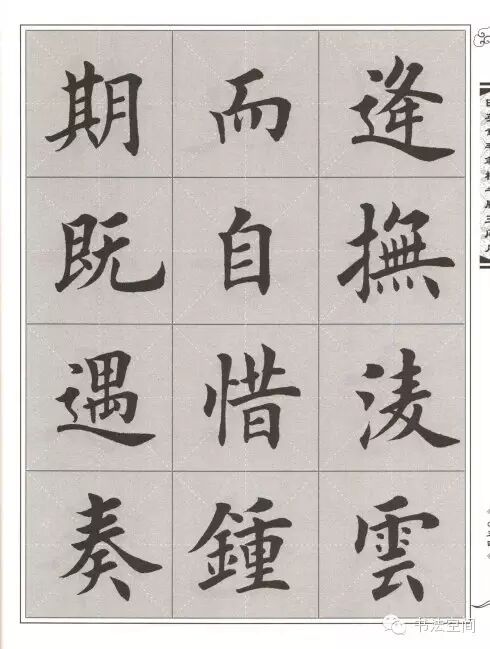 逢撫淩雲
而自惜鍾
期既遇奏
书法空间